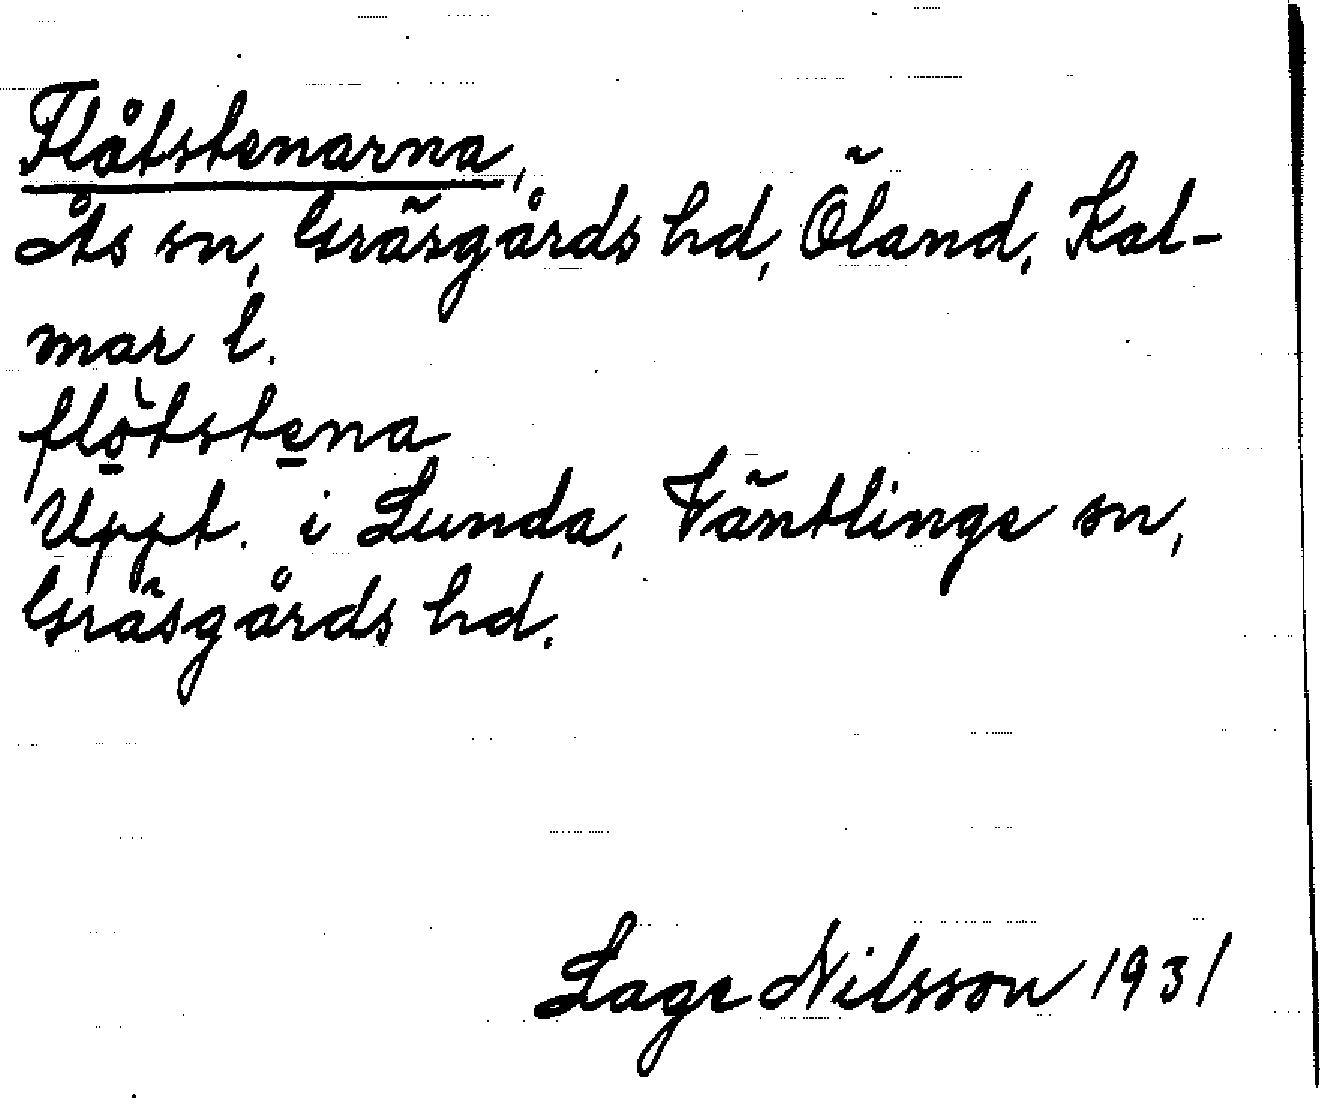 Flåtstenarna,
Ås sn, Gräsgårds hd, Öland, Kal-
mar l.
flòtstena
Uppt. i Lunda, Väntlinge sn,
Gräsgårds hd.
Lage Nilsson 1931